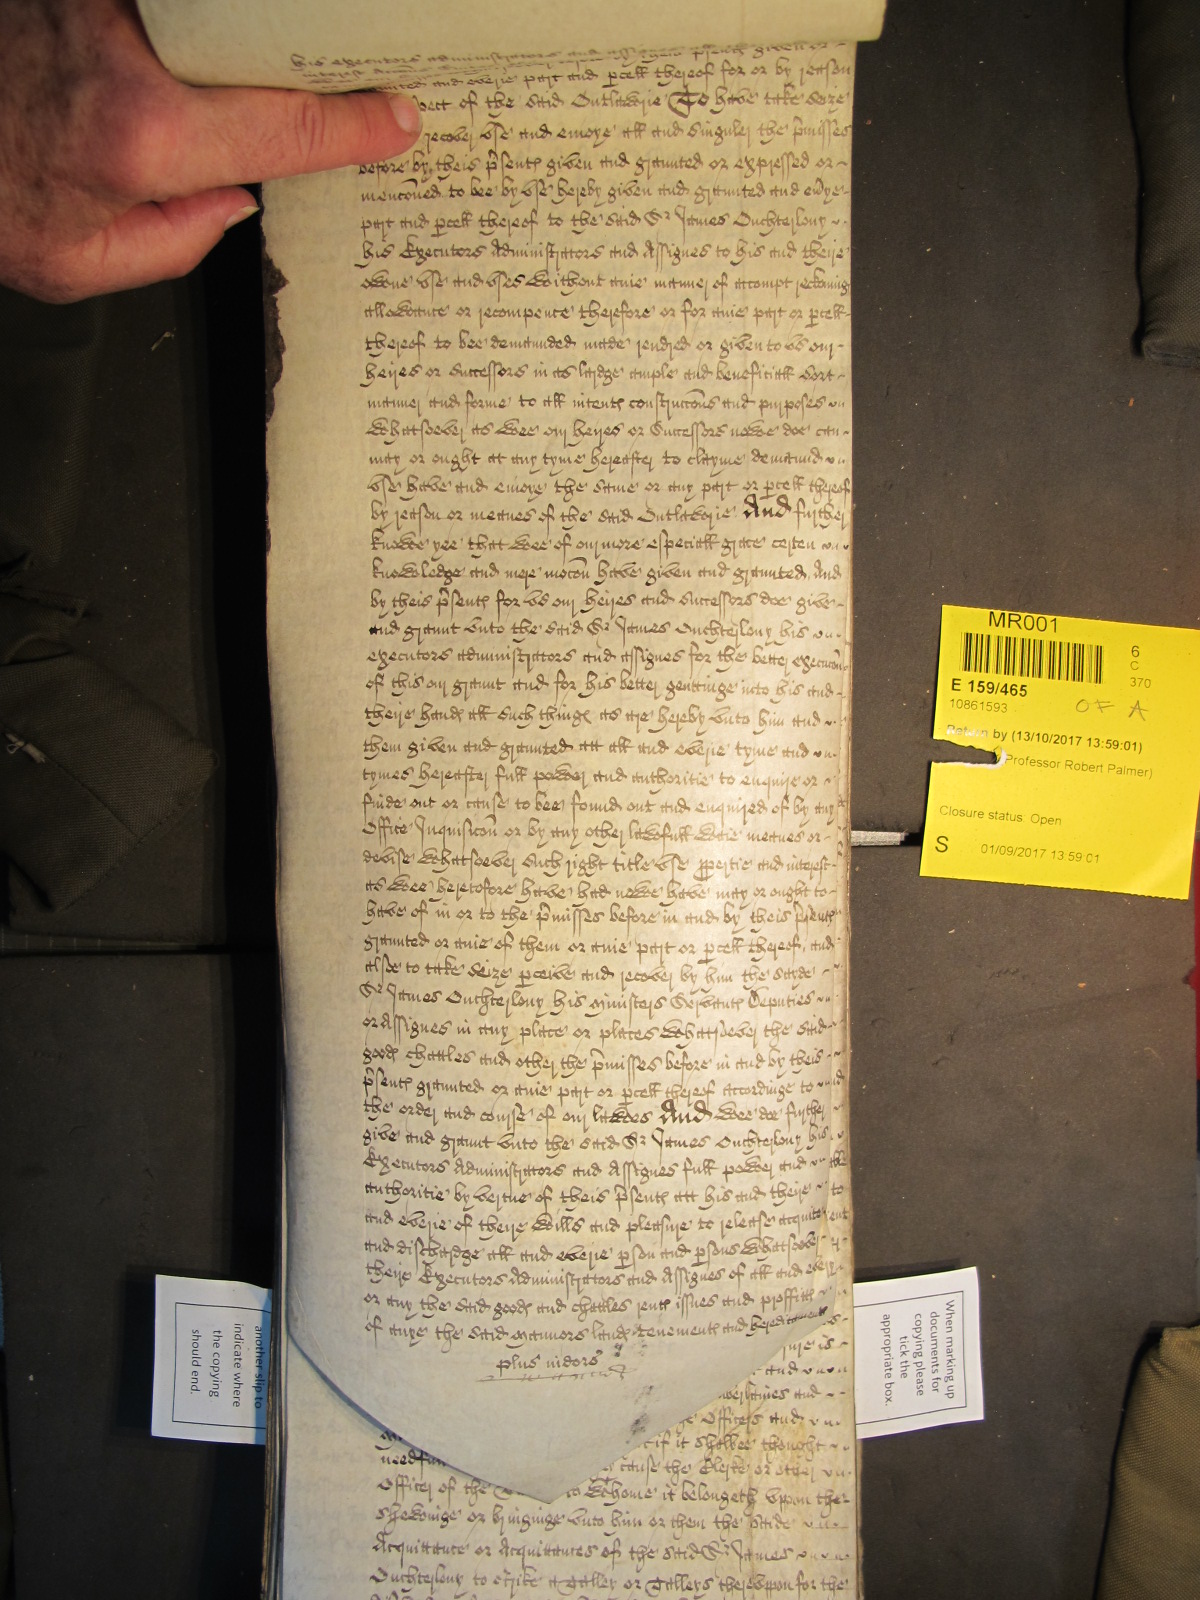 his executors administrators and assignes
and everie part and pcell thereof for or by reason
of the said Outlawrie To have take seize
recover vse and enioye all and singuler the pmisses
before by theis psente given and graunted or expressed or
menconed to bee by vse hereby given and graunted and everye
part and pcell thereof to the said Sr James Ouchterlony
his Executors Administrators and Assignes to his and theire
owne vse and vses without anie manner of accompt reckoning
allowance or recompence therefore or for anie part or pcell
thereof to bee demaunded made rendred or given to vs our
heires or successors in as lardge ample and beneficiall sort
manner and forme to all intente construccons and purposes
whatsoever as wee our heires or Successors nowe doe can
may or ought at any tyme hereafter to clayme demaund
vse have and enioye the same or any part or pcell thereof
by reason or meanes of the said Outlawrie And further
knowe yee that wee of our more especiall grace certen
knowledge and mere mocon have given and graunted And
by theis psente for vs our heires and successors doe give
and graunt vnto the said Sr James Ouchterlony his
executors administrators and assignes for the better execucon
of this our graunt and for his better gettinge into his and
theire hande all such thinge as are hereby vnto him and
them given and graunted att all and everie tyme and
tymes hereafter full power and authoritie to enquire or
finde out or cause to bee found out and enquired of by any
Office Inquisicon or by any other lawfull waie meanes or
devise whatsoever such right title vse pprtie and interest
as wee heretofore have had nowe have may or ought to
have of in or to the pmisses before in and by theis psente
graunted or anie of them or anie part or pcell thereof, and
alsoe to take seize pceive and recover by him the sayde
Sr James Ouchterlony his ministers Servante Deputies
or Assignes in any place or places whatsoever the said
goode chattles and other the pmisses before in and by theis
psente graunted or anie part or pcell thereof accordinge to
the order and course of our lawes And wee doe further
give and graunt vnto the said Sr James Ouchterlony his
Executors Administrators and Assignes full power and
authoritie by vertue of theis psente att his and theire
and everie of theire wills and pleasure to release acquite
and dischardge all and everie pson and psons whatsoever
theire Executors Administrators and Assignes of all and every
or any the said goode and chattles rente issues and proffitte
of anye the said mannors lande tenemente and hereditamente
plus indors
and
Officers and
if it shalbee thought
needfull cause the Clerke or other
Officer of the to whome it belongeth vppon the
shewinge or bringinge vnto him or them the saide
Acquittance or Acquittances of the said Sr James
Ouchterlony to strike a Talley or Talleys therevppon for the
MR001
6
C
370
E 159/465
10861593
OF A
Return by (13/10/2017 13:59:01)
Professor Robert Palmer)
Closure status: Open
S
01/09/2017 13:59:01
another slip to
indicate where
the copying
should end.
When marking up
documents for
copying please
tick the
appropriate box.